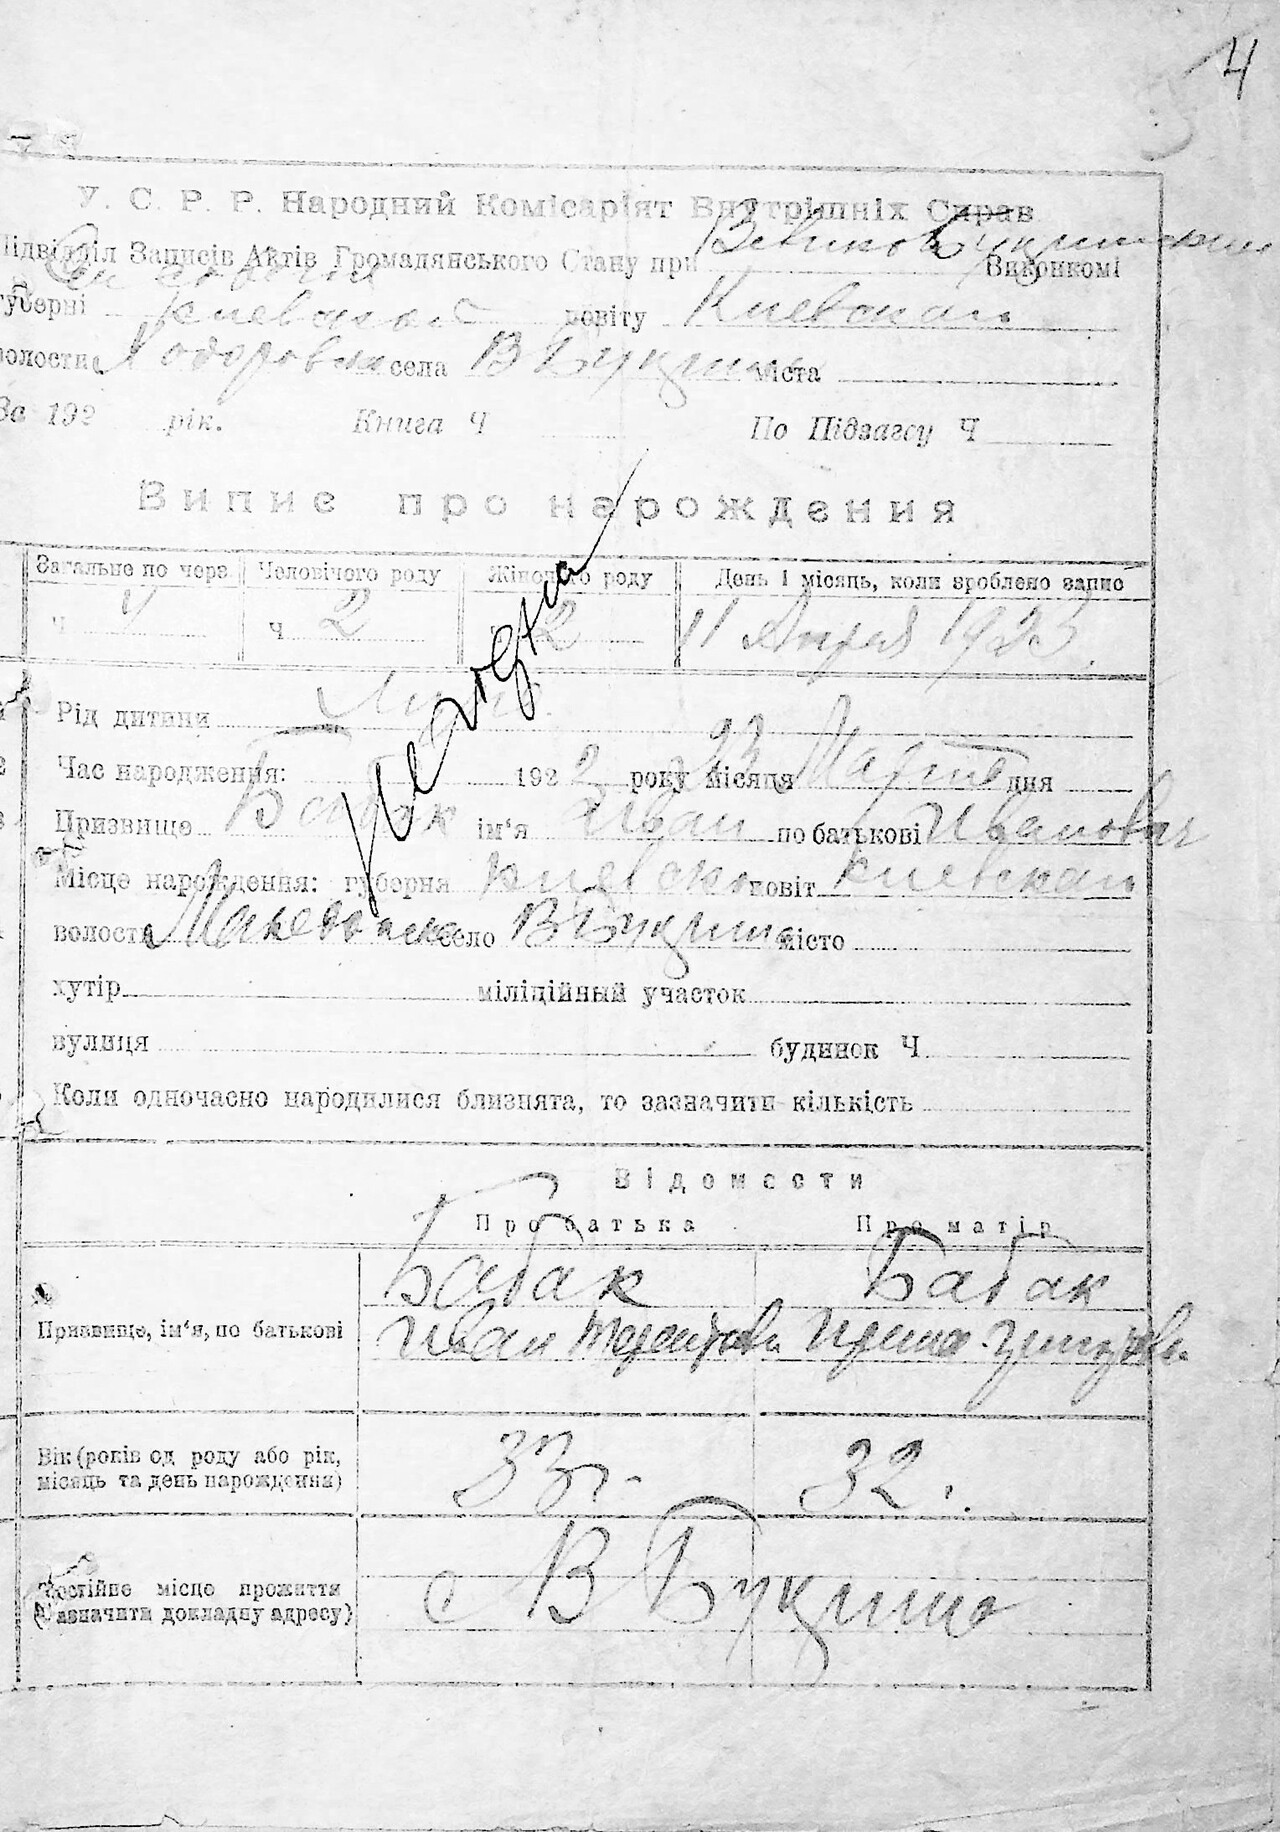 4
У. С. Р. Р. Народний Комісаріят Внутрішніх Справ
Підвідділ Записів Актів Громадянського Стану при Великов Букринским Виконкомі
губерні Киевской повіту Киевскаго
волости Ходоровск села В Букрина міста
За 192 рік. Книга Ч По Підзагсу Ч
Випис про нарождення
Загальне по черз. Человічого роду Жіночого роду День і місяць, коли зроблено запис
Ч 4 Ч 2 2 11 Апреля 1923
Рід дитини
Час народження: 1922 року місяця 23 Марта дня
Призвище Бабак ім'я Иван по батькові Иванович
Місце нарождення: губерня Киевско повіт Киевская
волость село В Букрина місто
хутір міліційный участок
вулиця будинок Ч
Коли одночасно народилися близнята, то зазначити кількість
Відомости
Про батька Про матір
Бабак Бабак
Призвище, ім'я, по батькові Иван
Вік (років од роду або рік, 33 г. 32.
місяць та день нарождення)
Постійне місце прожиття с В Букрина
(зазначити докладну адресу)